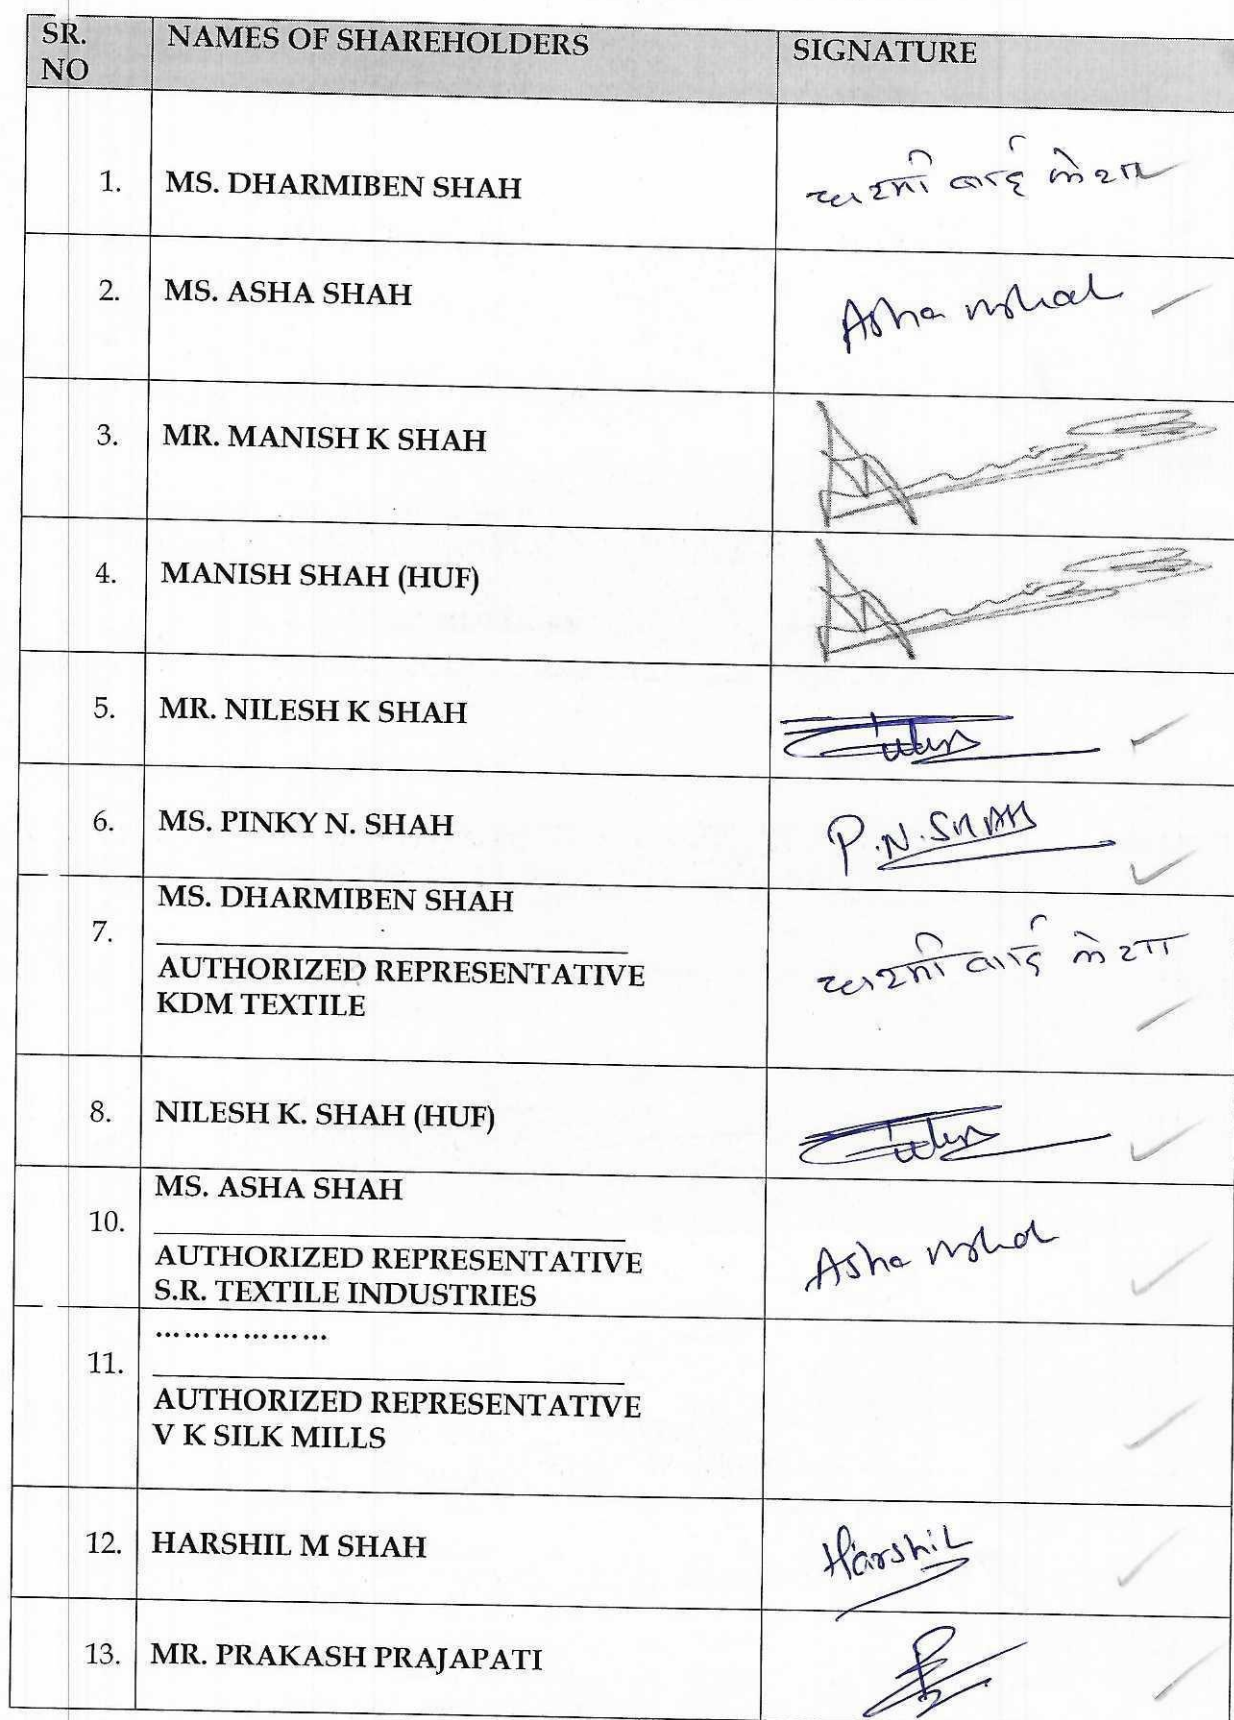 SR. NO
NAMES OF SHAREHOLDERS
SIGNATURE
1.
MS. DHARMIBEN SHAH
2.
MS. ASHA SHAH
Asha
3.
MR. MANISH K SHAH
4.
MANISH SHAH (HUF)
5.
MR. NILESH K SHAH
6.
MS. PINKY N. SHAH
P.N.SHAH
7.
MS. DHARMIBEN SHAH
AUTHORIZED REPRESENTATIVE
KDM TEXTILE
8.
NILESH K. SHAH (HUF)
10.
MS. ASHA SHAH
AUTHORIZED REPRESENTATIVE
S.R. TEXTILE INDUSTRIES
Asha
11.
..................
AUTHORIZED REPRESENTATIVE
V K SILK MILLS
12.
HARSHIL M SHAH
Harshil
13.
MR. PRAKASH PRAJAPATI